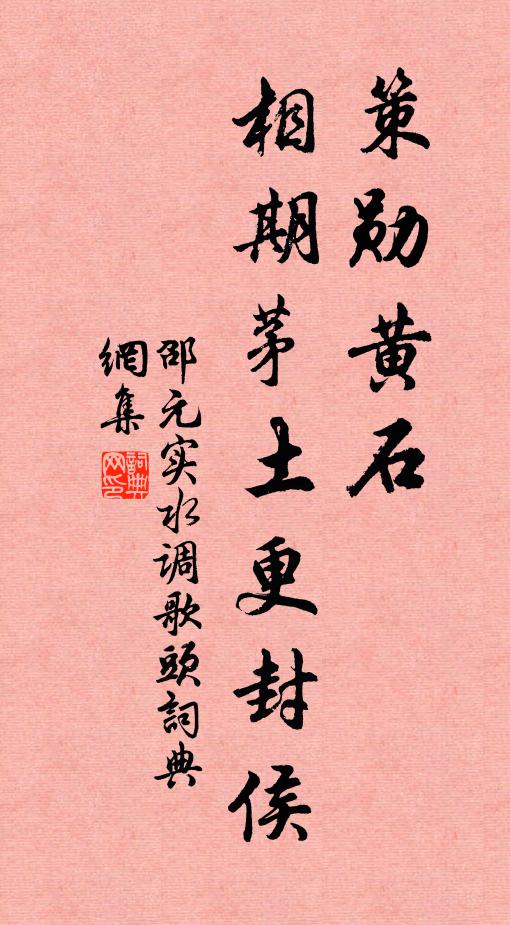 策勋黄石
相期茅土更封侯
邵元实水调歌头詞典
網集
詞典网印